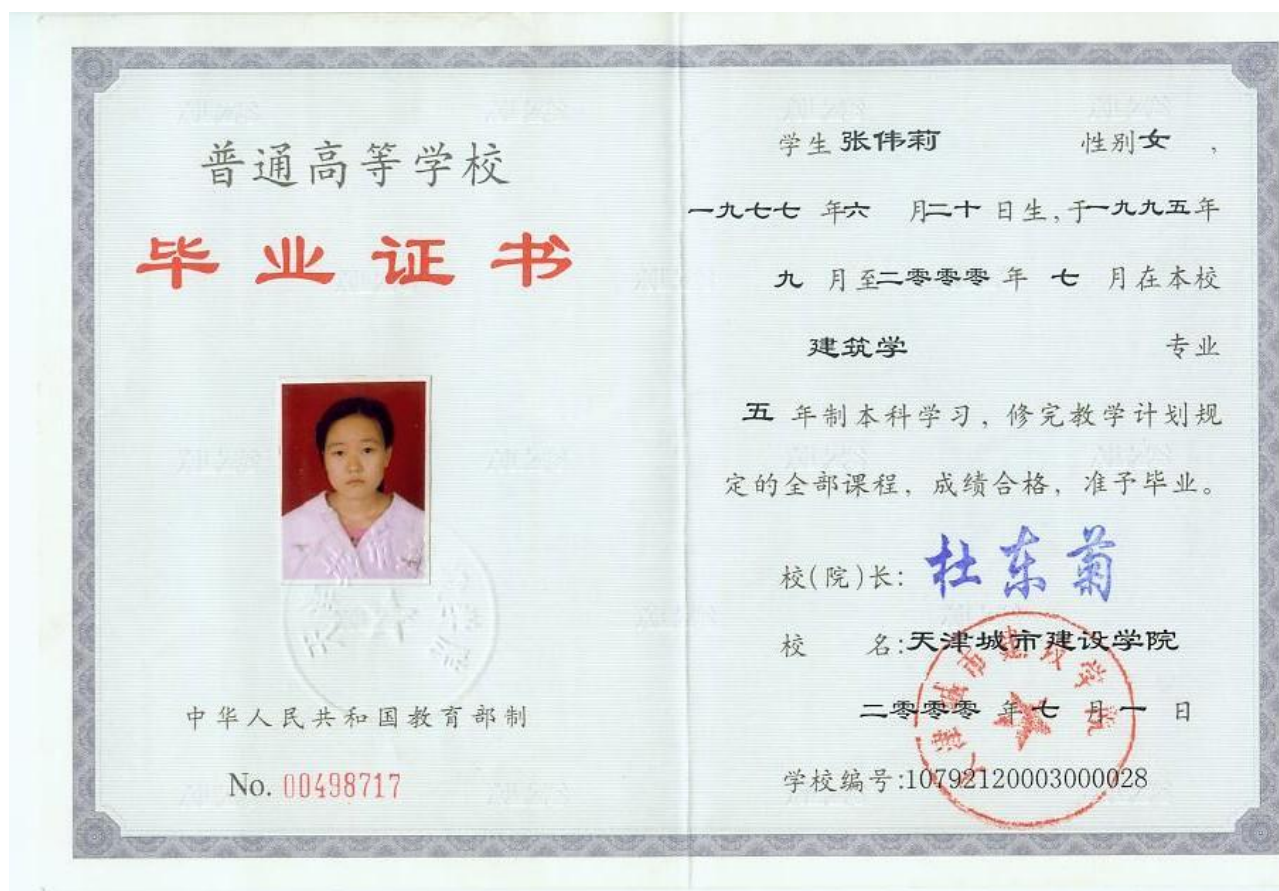 普通高等学校
毕业证书
中华人民共和国教育部制
No. 00498717
学生 张伟莉 性别 女 ,
一九七七 年 六 月 二十 日生, 于一九九五年
九 月至二零零零 年 七 月在本校
建筑学 专业
五 年制本科学习, 修完教学计划规
定的全部课程, 成绩合格, 准予毕业。
校(院)长: 杜东菊
校 名: 天津城市建设学院
二零零零 年 七 月 一 日
学校编号:10792120003000028
天津城市建设学院